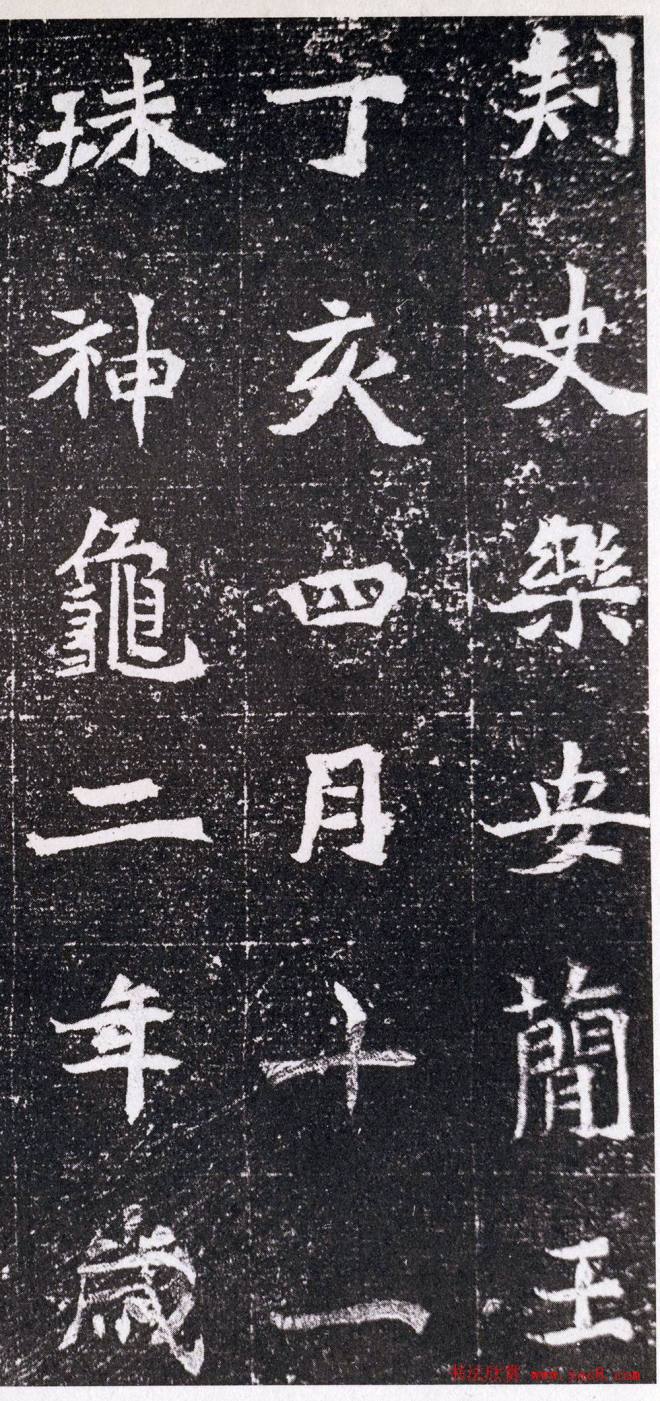 刺史樂安簡王
丁亥四月十一
珠神龜二年歲
书法欣赏 www.yac8.com